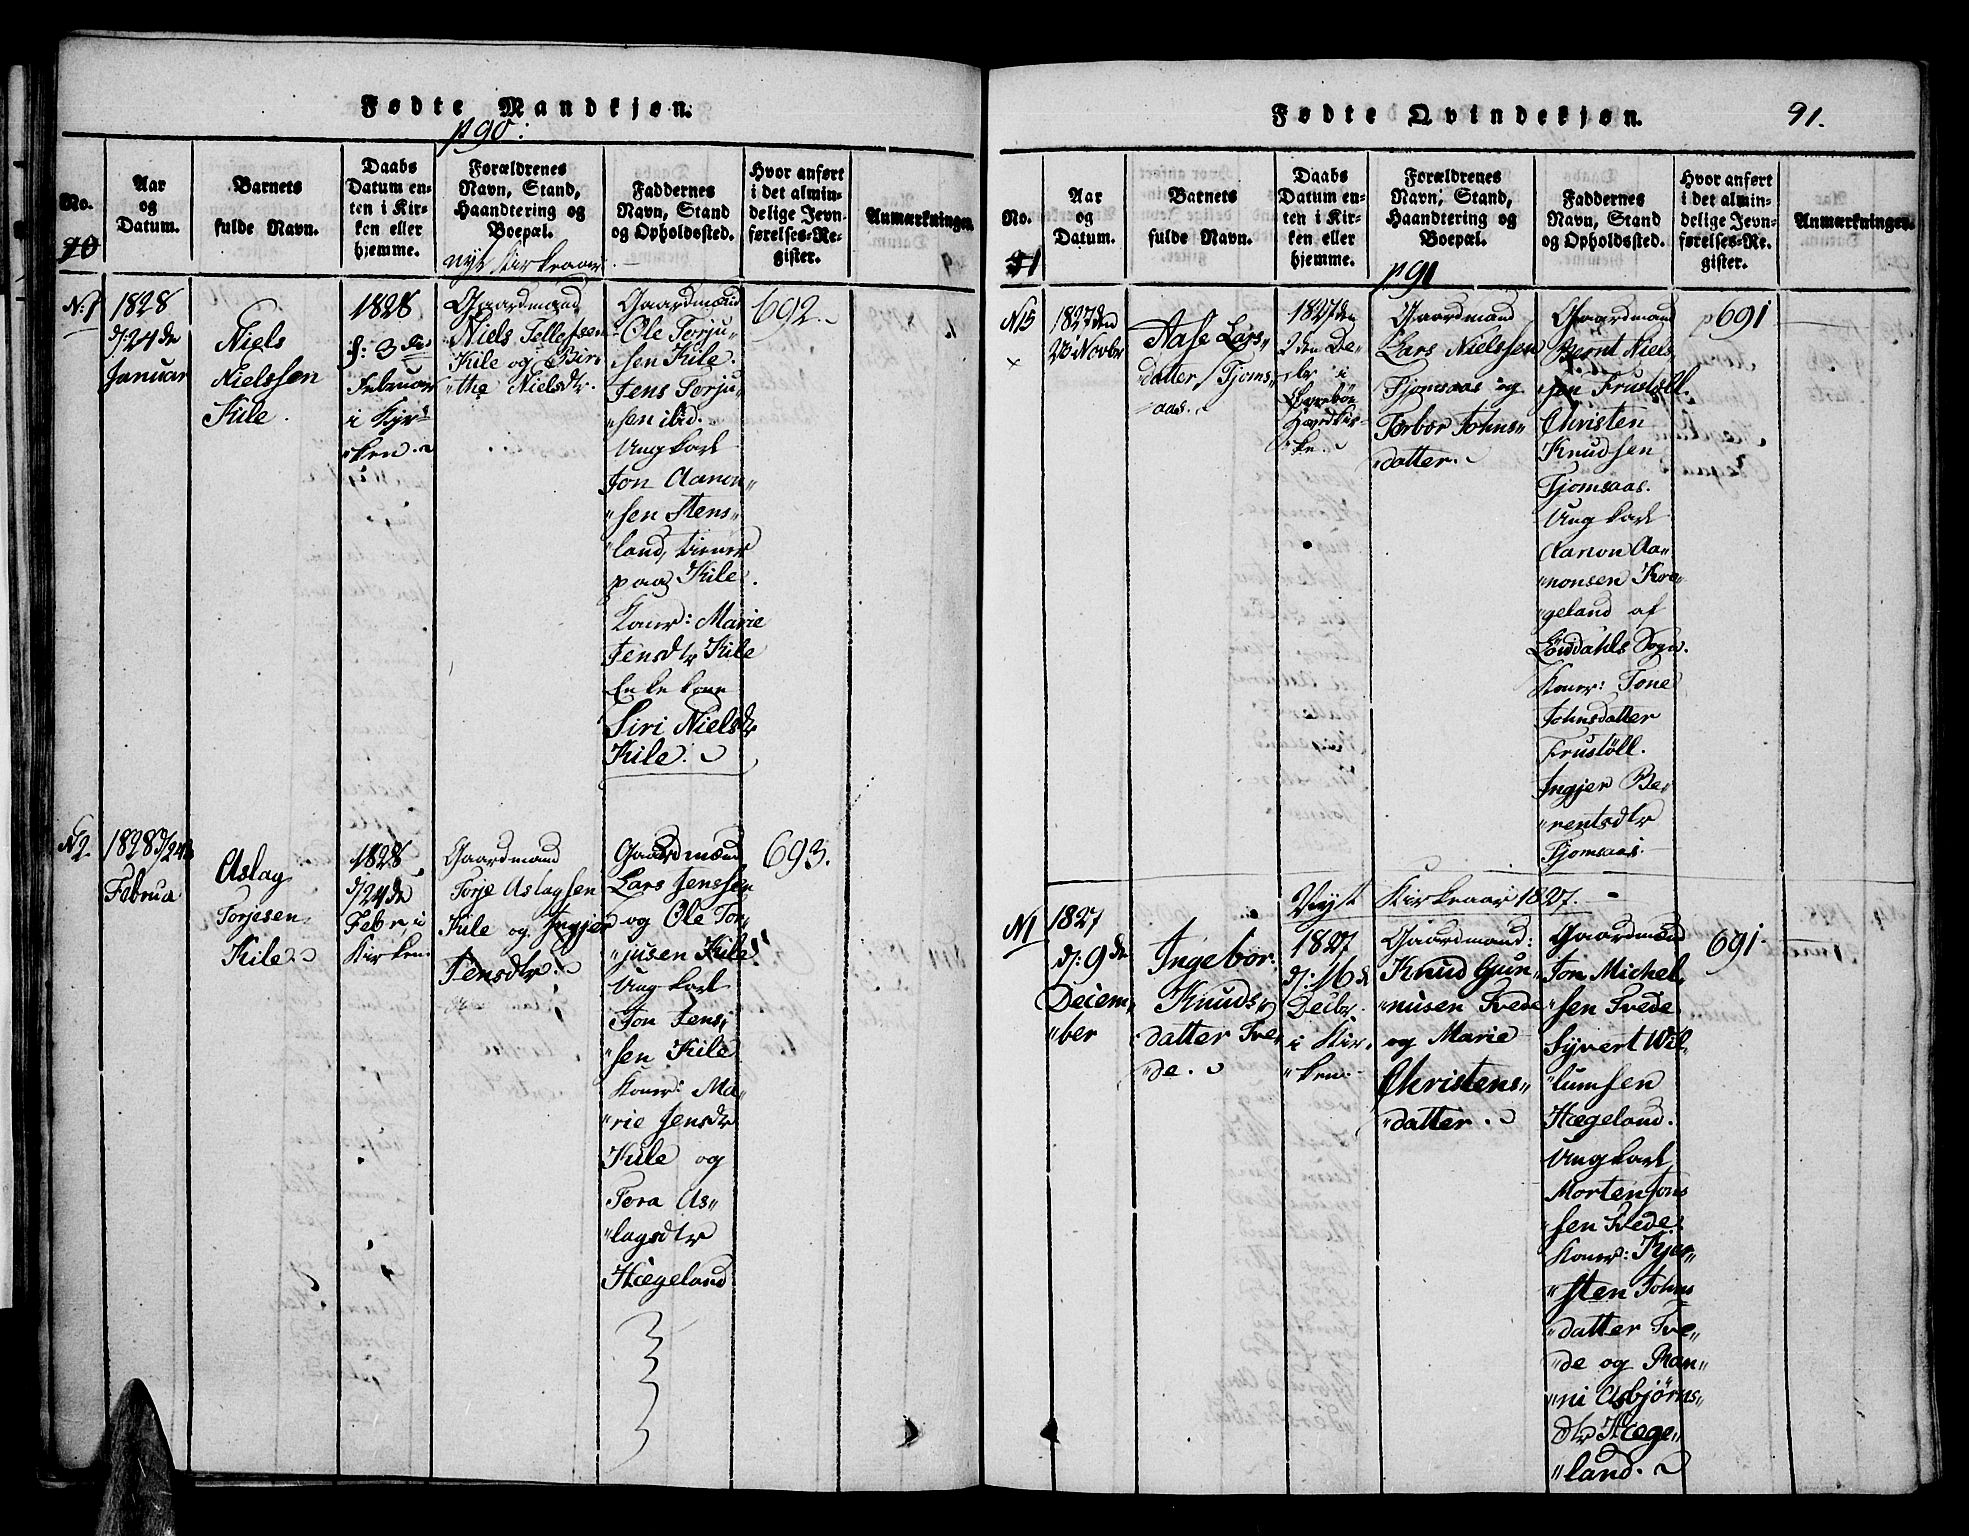 Fødte Mandkjøn.
p 90:
No.
90
Aar
og
Datum.
Barnets
fulde Navn.
Daabs
Datum en-
ten i Kir-
ken eller
hjemme.
Forældrenes
Navn, Stand,
Haandtering og
Boepæl.
nyt Kirkeaar
Faddernes
Navn, Stand
og Opholdssted.
Hvor anført
i det almin-
delige Jevn-
førelses-Re-
gister.
Anmærkninger.
N: 1
1828
d/24de
Januar
Niels
Nielssen
Kile
1828
d: 3die
Februar
i Kir-
"ken.
Gaardmand
Niels Tellefsen
Kile og Bir
"the Nielsdtr.
Gaardmænd
Ole Torju-
"sen Kile.
Jens Torju-
"sen ibid.
Ungkarl
Jon Aanon-
"sen Stens-
"land, tiener
paa Kile.
Koner: Marie
Jensdtr Kile
Enkekone
Siri Nielsdtr
Kile.
692.
N2.
1828 d/24de
Februa
Aslag
Torjesen
Kile
1828
d/24de
Febr i
Kirken.
Gaardmand
Torje Aslagsen
Kile og Ingjer
Jensdtr.
Gaardmænd
Lars Jenssen
og Ole Tor-
"jusen Kile
Ungkarl
Jon Jens-
"sen Kile
Koner: Ma-
"rie Jensdtr
Kile og
Tora As-
"lagsdtr
Hægeland
693.
Fødte Qvindekjøn.
91.
No.
91
Aar
og
Datum.
Barnets
fulde Navn.
Daabs
Datum en-
ten i Kir-
ken eller
hjemme.
Forældrenes
Navn, Stand,
Haandtering og
Boepæl.
p 91
Faddernes
Navn, Stand
og Opholdssted.
Hvor anført
i det almin-
delige Jevn-
førelses-Re-
gister.
Anmærkninger.
N15
1827 den
Novbr
Aase Lars-
datter Tjoms-
"aas.
1827 den
2den De-
cbr i
Gaardmand
Lars Nielssen
Tjomsaas og
Torbor Johns-
"datter.
Gaardmænd
Bernt Niels
sen Frustøll.
Christen
Knudsen
Tjomsaas.
Ungkarl
Aanon Aa-
"nonsen
"geland af
Sogn.
Koner: Tone
Johnsdatter
Frustöll.
Ingjer Be-
"rentsdtr
Tjomsaas.
p 691
Nyt Kirkeaar 1827.
N1
1827
d: 9de
Decem-
"ber
Ingebor
Knuds-
datter Tve-
"de.
1827
d: 16de
Decbr
i Kir-
"ken.
Gaardmand:
Knud Gun-
"nusen Tvede
og Marie
Christens-
"datter.
Gaardmænd
Jon Michel-
"sen Tvede
Syvert Wil-
"lumsen
Hægeland.
Ungkarl
Morten Jons
"sen Tvede.
Koner: Kjer-
"sten Johns
"datter Tve-
"de og Ran-
"ni Asbjørns-
dtr Hæge-
"land.
691